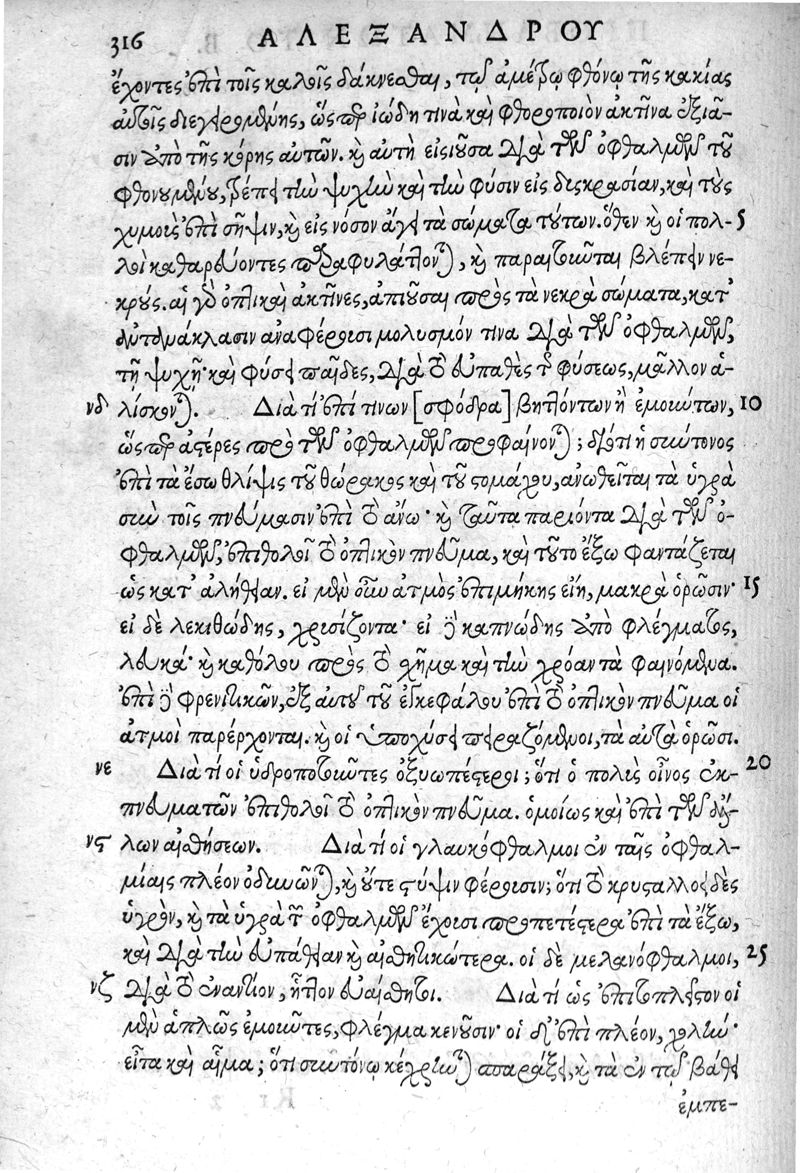 316 ΑΛΕΞΑΝΔΡΟΥ
ἔχοντες ἐπὶ τοῖς καλοῖς δάκνεσθαι, τῷ ἀμέτρῳ φθόνῳ τῆς κακίας
αὐτοῖς διεγειρομένης, ὥσπερ ἰώδη τινὰ καὶ φθοροποιὸν ἀκτῖνα ἐξιᾶ-
σιν ἀπὸ τῆς κόρης αὐτῶν. καὶ αὐτὴ εἰσιοῦσα διὰ τῶν ὀφθαλμῶν τοῦ
φθονουμένου, τρέπει τὴν ψυχὴν καὶ τὴν φύσιν εἰς δυσκρασίαν, καὶ τοὺς
χυμοὺς ἐπὶ σῆψιν, καὶ εἰς νόσον ἄγει τὰ σώματα τούτων. ὅθεν καὶ οἱ πολ- 5
λοὶ καθαρεύοντες παραφυλάττονται, καὶ παραιτοῦνται βλέπειν νε-
κρούς. αἱ γὰρ ὀπτικαὶ ἀκτῖνες, ἀπιοῦσαι πρὸς τὰ νεκρὰ σώματα, κατ’
ἀνάκλασιν ἀναφέρουσι μολυσμόν τινα διὰ τῶν ὀφθαλμῶν,
τῇ ψυχῇ· καὶ φύσει παῖδες, διὰ τὸ εὐπαθὲς τῆς φύσεως, μᾶλλον ἁ-
νδ λίσκονται. Διὰ τί ἐπί τινων [σφόδρα] βηττόντων ἢ ἐμούντων, 10
ὥσπερ ἀστέρες πρὸ τῶν ὀφθαλμῶν προφαίνονται; διότι ἡ σύντονος
ἐπὶ τὰ ἔσω θλίψις τοῦ θώρακος καὶ τοῦ στομάχου, ἀνωθεῖται τὰ ὑγρὰ
σὺν τοῖς πνεύμασιν ἐπὶ τὸ ἄνω· καὶ ταῦτα παριόντα διὰ τῶν ὀ-
φθαλμῶν, ἐπιθολοῖ τὸ ὀπτικὸν πνεῦμα, καὶ τοῦτο ἔξω φαντάζεται
ὡς κατ’ ἀλήθειαν. εἰ μὲν οὖν ἀτμὸς ἐπιμήκης εἴη, μακρὰ ὁρῶσιν· 15
εἰ δὲ λεκιθώδης, χρυσίζοντα· εἰ δὲ καπνώδης ἀπὸ φλέγματος,
λευκά· καὶ καθόλου πρὸς τὸ σχῆμα καὶ τὴν χρόαν τὰ φαινόμενα.
ἐπὶ δὲ φρενιτικῶν, ἐξ αὐτοῦ τοῦ ἐγκεφάλου ἐπὶ τὸ ὀπτικὸν πνεῦμα οἱ
ἀτμοὶ παρέρχονται. καὶ οἱ ὑποχύσει πειραζόμενοι, τὰ αὐτὰ ὁρῶσι.
νε Διὰ τί οἱ ὑδροποτοῦντες ὀξυωπέστεροι; ὅτι ὁ πολὺς οἶνος ἐκ- 20
πνευματῶν ἐπιθολοῖ τὸ ὀπτικὸν πνεῦμα. ὁμοίως καὶ ἐπὶ τῶν ἄλ-
νϛ λων αἰσθήσεων. Διὰ τί οἱ γλαυκόφθαλμοι ἐν ταῖς ὀφθαλ-
μίαις πλέον ὀδυνῶνται, καὶ οὔτε στύψιν φέρουσιν; ὅτι τὸ κρυσταλλοειδὲς
ὑγρὸν, καὶ τὰ ὑγρὰ τῶν ὀφθαλμῶν ἔχουσι προπετέστερα ἐπὶ τὰ ἔξω,
καὶ διὰ τὴν εὐπάθειαν καὶ αἰσθητικώτερα. οἱ δὲ μελανόφθαλμοι, 25
νζ διὰ τὸ ἐναντίον, ἧττον εὐαίσθητοι. Διὰ τί ὡς ἐπιτοπλεῖστον οἱ
μὲν ἁπλῶς ἐμοῦντες, φλέγμα κενοῦσιν· οἱ δ’ ἐπὶ πλέον, χολήν·
εἶτα καὶ αἷμα; ὅτι συντόνῳ κέχρηνται σπαράξει, καὶ τὰ ἐν τῷ βάθει
ἐμπε-